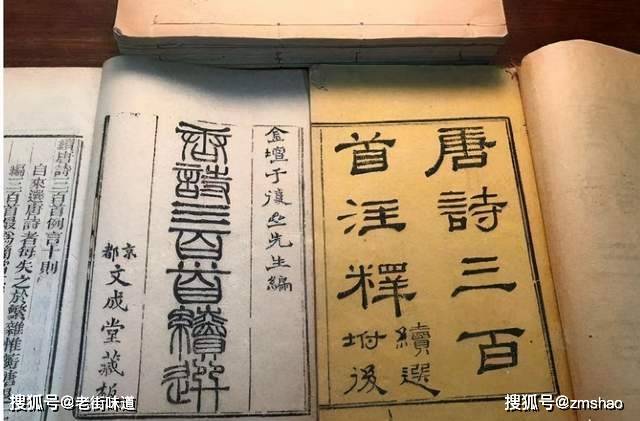 唐詩三百
首注釋
續選
坿後
金壇于復先生編
唐詩三百首續選
京都
文成堂藏板
續唐詩三百首例言十則
自來選唐詩者每失之於繁雜惟蘅唐
編三百首最為簡當
搜狐号@老街味道
搜狐号@zmshao